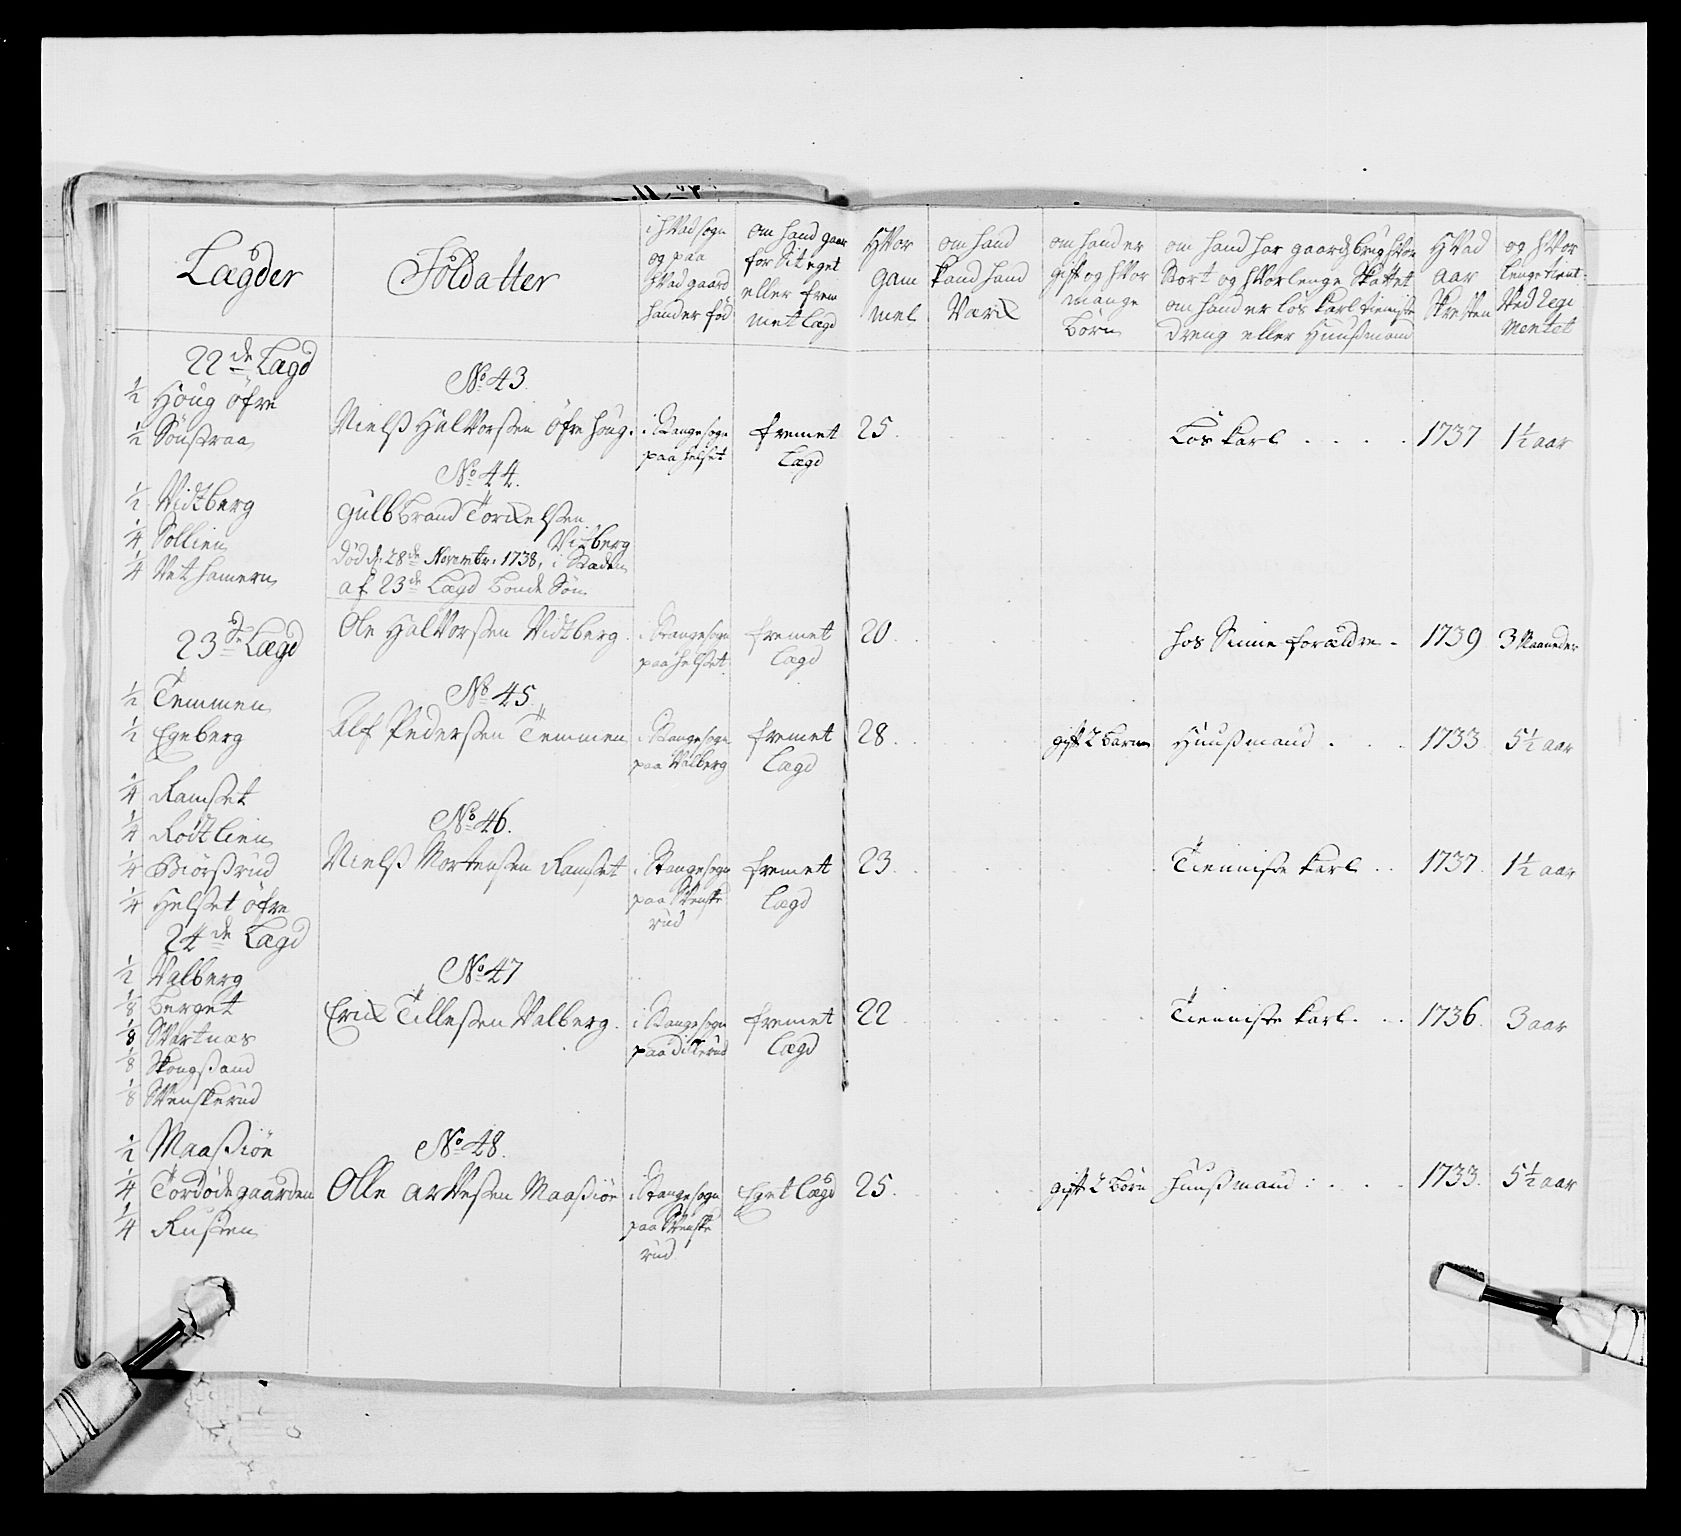 Lægder
Soldatter
i hVad sogn
og paa
hVad gaard
hand er fød
om hand gaar
for Sit eget
eller frem
met Lægd
HVor
gam
mel
om hand
kand hand
Værk
om hand er
gift og hVor
mange
Børn
om hand har gaard brug hVor
Stort og hVorlenge Skattet
om hand er løs karl tieniste
dreng eller Huusmand
HVad
aar
Skreften
og hVor
lenge tient
Ved Regi
mentet
22de Lægd
No 43
1/2 Houg öfre
1/2 Sönstraa
Niels HalVorsen Öfre houg. i Stange sogn paa helset fremet Lægd 25. Løs karl 1737 1½ aar
No 44.
1/2 Vidtberg
1/4 Sollien
1/4 Vethamern
Gulbbrand Torkelsen
Vitberg
død d. 28de Novembr. 1738, i Staden
af 23de Lægd Bonde Søn
23de Lægd
Ole HalVorsen Vidtberg. i Stange sogn paa helset. fremet Lægd 20. hos Sinne forældre - 1739 3 Maaneder
No 45.
1/2 Temmen
1/2 Egeberg
Alf Pedersen Temmen i Stange sogn paa Valberg fremet Lægd 28 gift 2 barn Huusmand 1733 5½ aar
1/4 Ramset
1/4 Rödtlien
1/4 Biörsrud
1/4 Helset öfre
No 46.
Niels Mortensen Ramset i Stange sogn paa SVenske rud fremet Lægd 23. Tienniste karl 1737. 1½ aar
24de Lægd
No 47
1/2 Valberg
1/8 Berget
1/8 SVartnæs
1/8 Skougsand
1/8 SVenskerud
Erik Tillesen Valberg. i Stange sogn paa dillerud fremet Lægd 22 Tienniste karl. 1736. 3 aar
No 48.
1/2 Maasiöe
1/4 Tordödegaarden
1/4 Rusten
Olle arVesen Maasiöe i Stange sogn paa SVenske rud Eget Lægd 25. gift 2 Børn huusmand 1733. 5½ aar